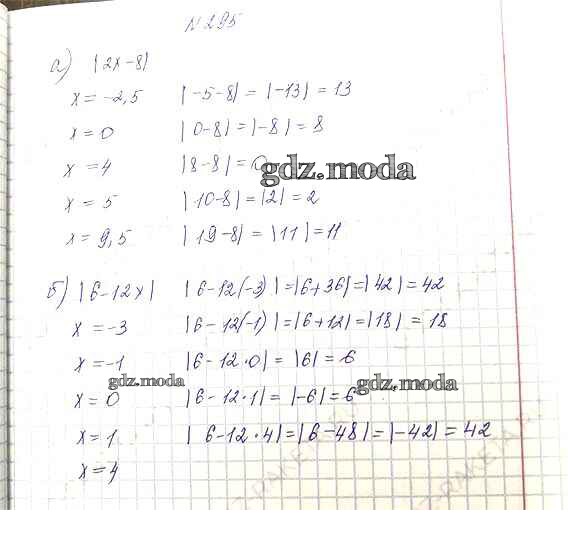 № 295
а) |2x-8|
x = -2,5 |-5-8| = |-13| = 13
x = 0 |0-8| = |-8| = 8
x = 4 |8-8| = 0
gdz.moda
x = 5 |10-8| = |2| = 2
x = 9,5 |19-8| = |11| = 11
б) |6-12x| |6-12(-3)| = |6+36| = |42| = 42
x = -3 |6-12(-1)| = |6+12| = |18| = 18
x = -1 |6-12·0| = |6| = 6
gdz.moda gdz.moda
x = 0 |6-12·1| = |-6| = 6
x = 1 |6-12·4| = |6-48| = |-42| = 42
x = 4